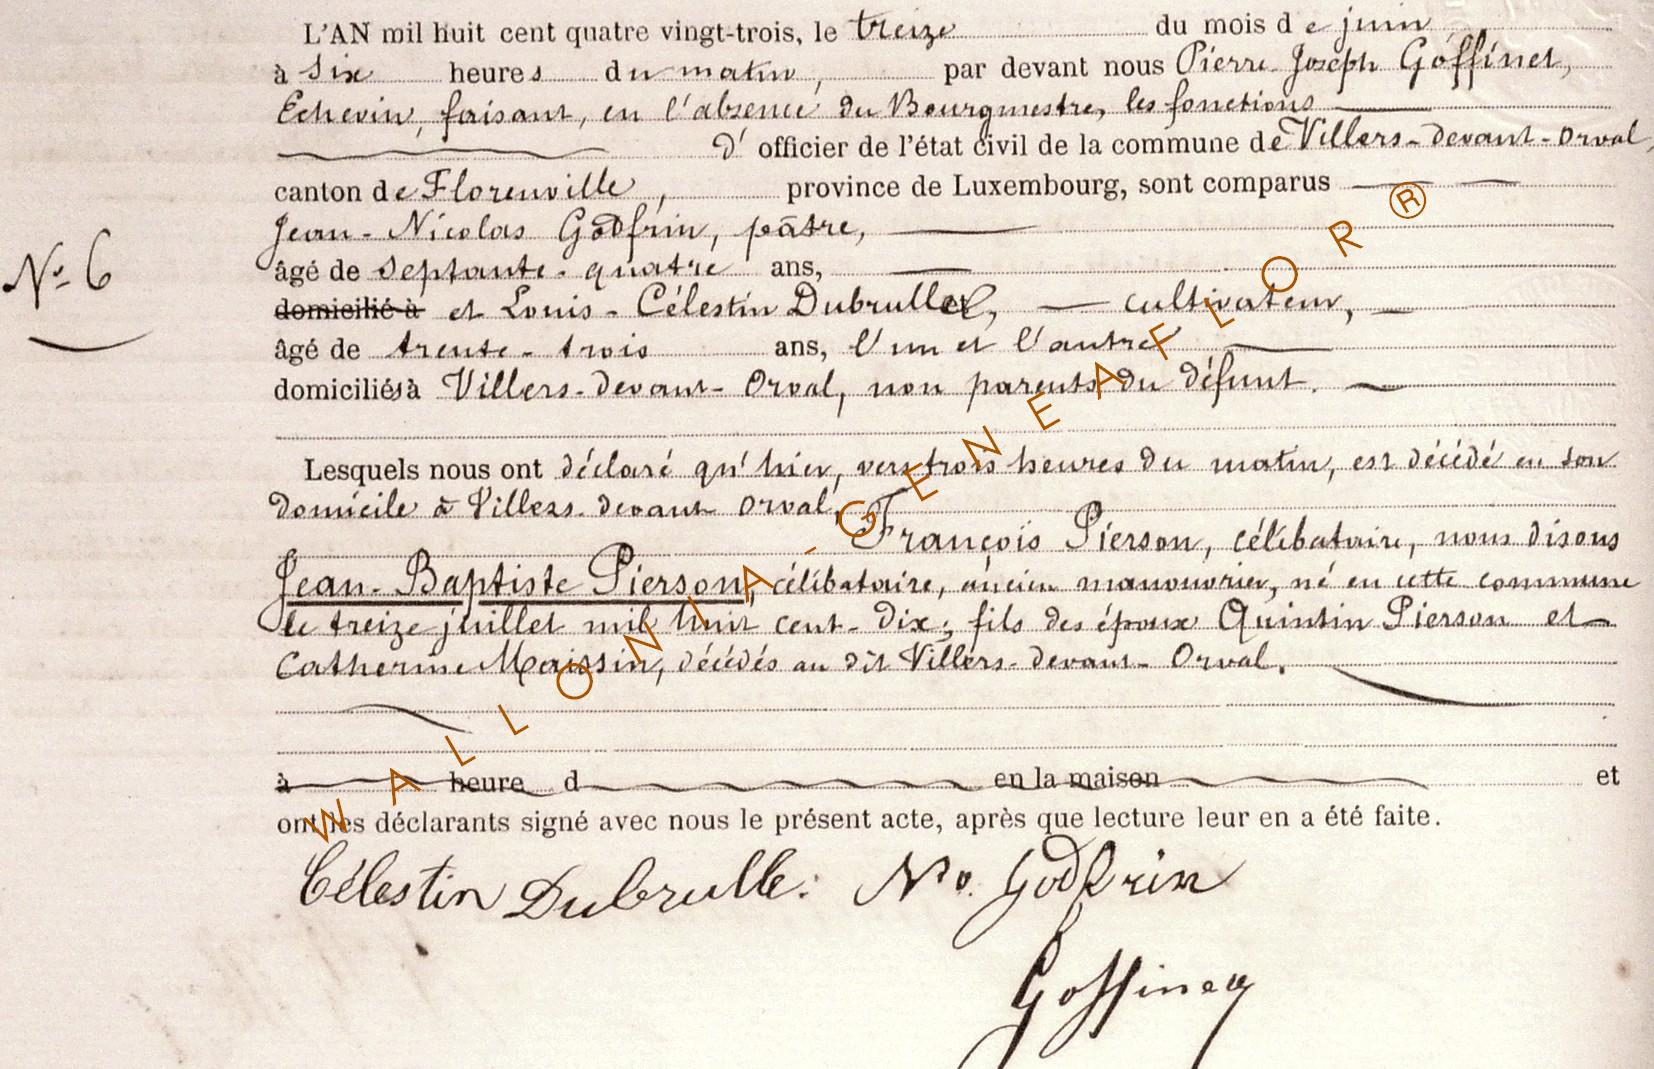 L'AN mil huit cent quatre vingt-trois, le treize du mois de juin
à six heures du matin, par devant nous Pierre-Joseph Goffinet,
Echevin, faisant, en l'absence du Bourgmestre, les fonctions
d'officier de l'état civil de la commune de Villers-devant-Orval,
canton de Florenville, province de Luxembourg, sont comparus
Jean-Nicolas Godfrin, pâtre,
N° 6
âgé de septante-quatre ans,
domicilié à et Louis-Célestin Dubrulle, cultivateur,
âgé de trente-trois ans, l'un et l'autre
domiciliés à Villers-devant-Orval, non parents du défunt.
Lesquels nous ont déclaré qu'hier, vers trois heures du matin, est décédé en son
domicile à Villers-devant Orval, François Pierson, célibataire, nous disons
Jean-Baptiste Pierson, célibataire, ancien manouvrier, né en cette commune
le treize juillet mil huit cent-dix; fils des époux Quintin Pierson et
Catherine Maissin, décédés au dit Villers-devant-Orval.
à heure d en la maison et
ont les déclarants signé avec nous le présent acte, après que lecture leur en a été faite.
Célestin Dubrulle. No. Godfrin
Goffinet
WALLONIA-GENEAFLOR®